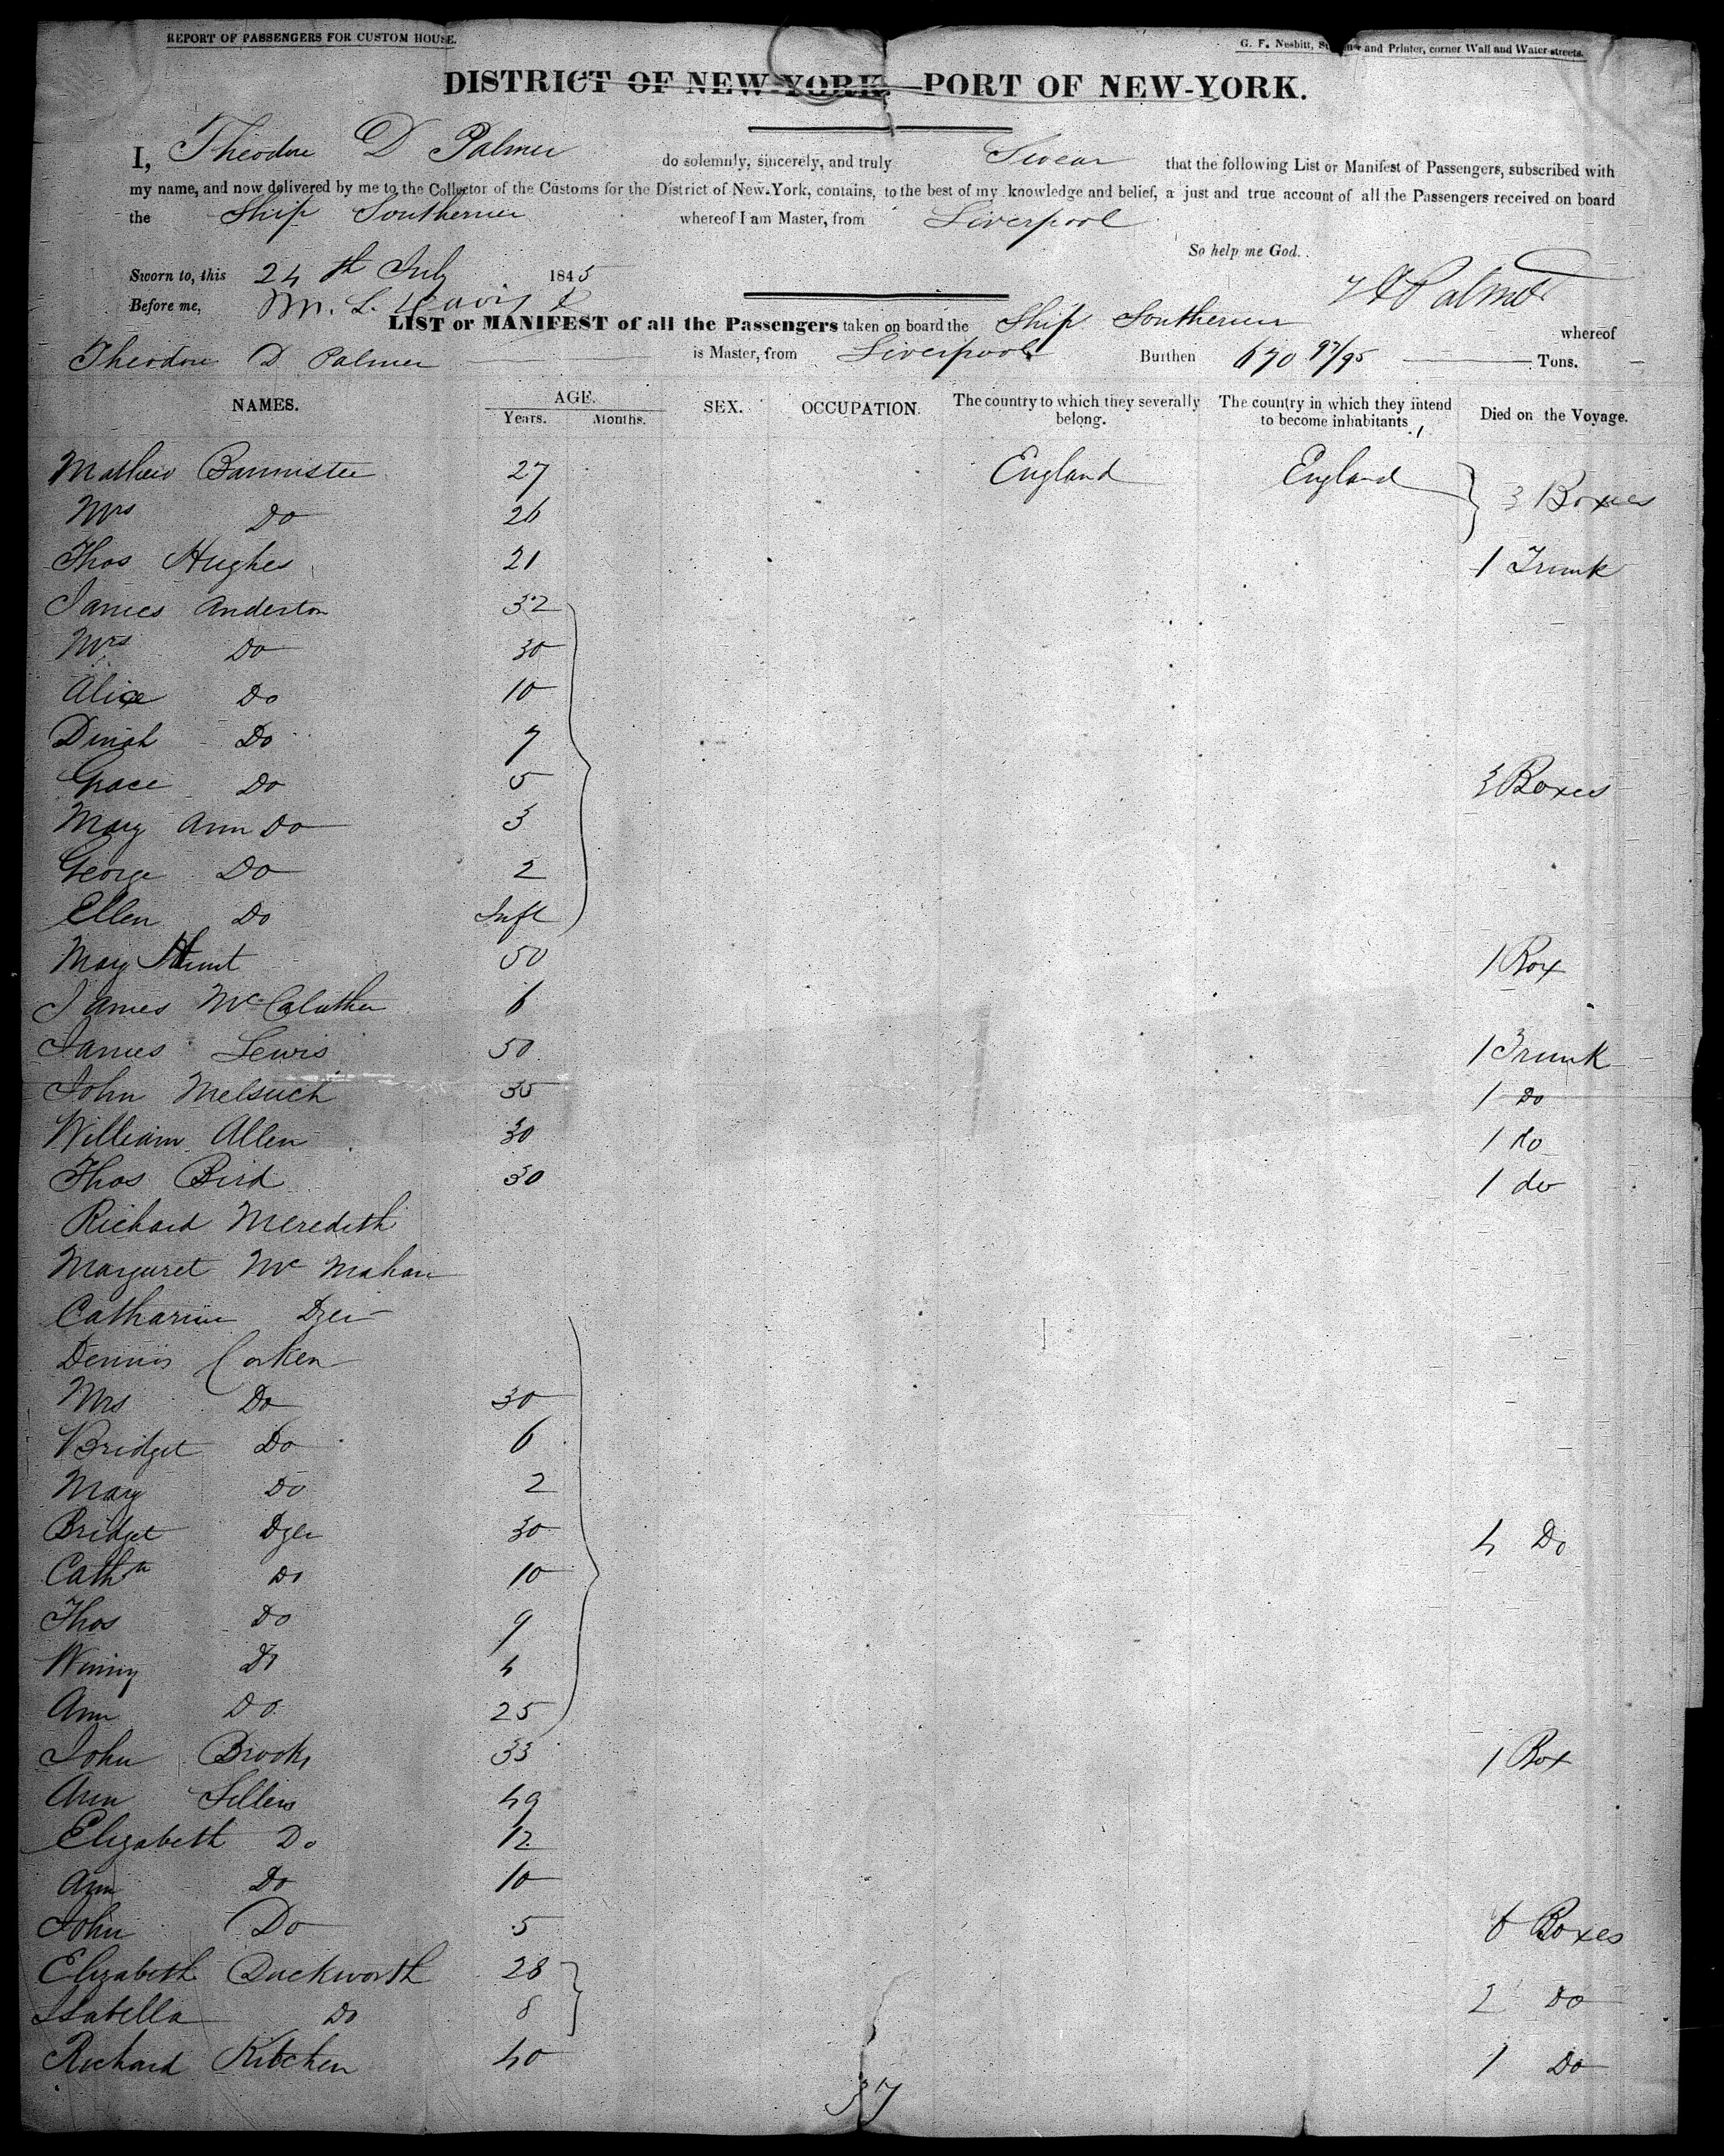 REPORT OF PASSENGERS FOR CUSTOM HOUSE.
G. F. Nesbitt, and Printer, corner Wall and Water-streets.
DISTRICT OF NEW-YORK—PORT OF NEW-YORK.
I, Theodore D Palmer do solemnly, sincerely, and truly Swear that the following List or Manifest of Passengers, subscribed with
my name, and now delivered by me to the Collector of the Customs for the District of New-York, contains, to the best of my knowledge and belief, a just and true account of all the Passengers received on board
the Ship Southerner whereof I am Master, from Liverpool
So help me God.
Sworn to, this 24th July 1845
Before me, M. L. Davis T D Palmer
LIST or MANIFEST of all the Passengers taken on board the Ship Southerner whereof
Theodore D Palmer is Master, from Liverpool Burthen 670 97/95 Tons.
NAMES. AGE. Years. Months. SEX. OCCUPATION. The country to which they severally belong. The country in which they intend to become inhabitants. Died on the Voyage.
Mathew Bannister 27 England England
Mrs Do 26 3 Boxes
Thos Hughes 21 1 Trunk
James Anderton 32
Mrs Do 30
Alice Do 10
Dinah Do 7
Grace Do 5 3 Boxes
Mary Ann Do 3
George Do 2
Ellen Do Inft
Mary Hunt 50 1 Box
James 6
James Lewis 50 1 Trunk
John 35 1 Do
William Allen 30 1 do
Thos Bird 30 1 do
Richard Meredith
Margaret Mc Mahan
Catharine Dyer
Dennis Corken
Mrs Do 30
Bridget Do 6
Mary Do 2
Bridget Dyer 30 4 Do
Cathn Do 10
Thos Do 9
Winny Do 4
Ann Do 25
John Brooks 33 1 Box
Ann Sellers 49
Elizabeth Do 12
Ann Do 10
John Do 5 6 Boxes
Elizabeth Duckworth 28
Isabella Do 8 2 Do
Richard Kitchen 40 1 Do
37